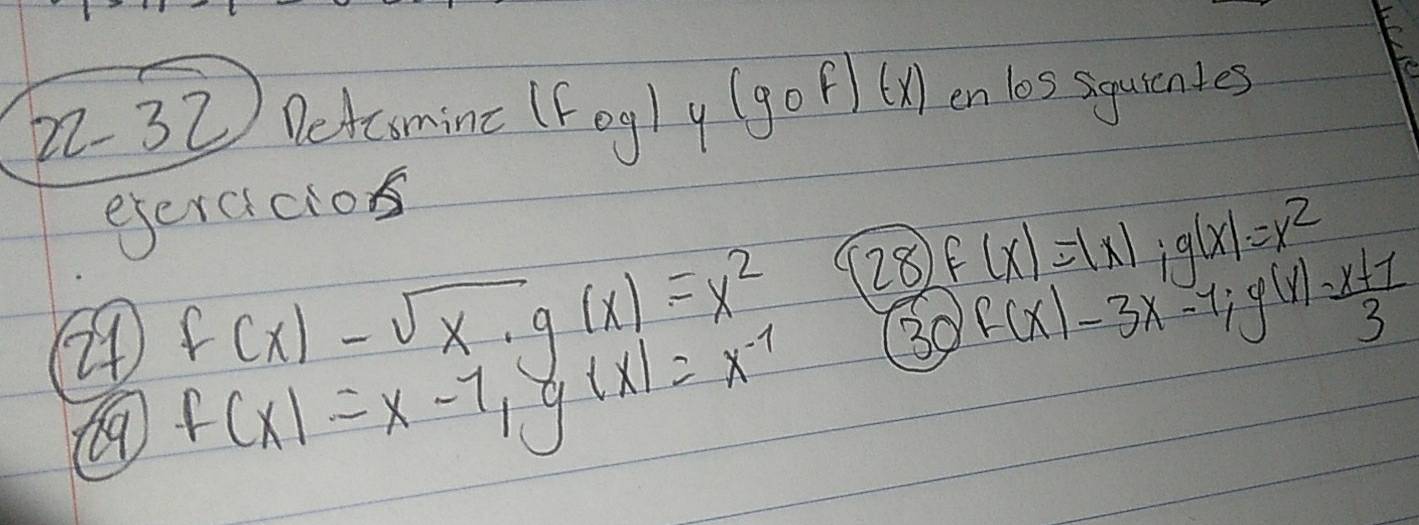 22-32 Determine (fog) y (gof)(x) en los siguientes
ejercicios
27) f(x) - √x . g(x) = x²
28) f(x) = |x| ; g(x) = x²
29) f(x) = x - 1, g(x) = x⁻¹
30) f(x) - 3x - 1; g(x) - x+1/3